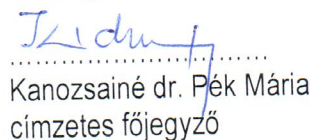 Kanozsainé dr. Pék Mária
címzetes főjegyző